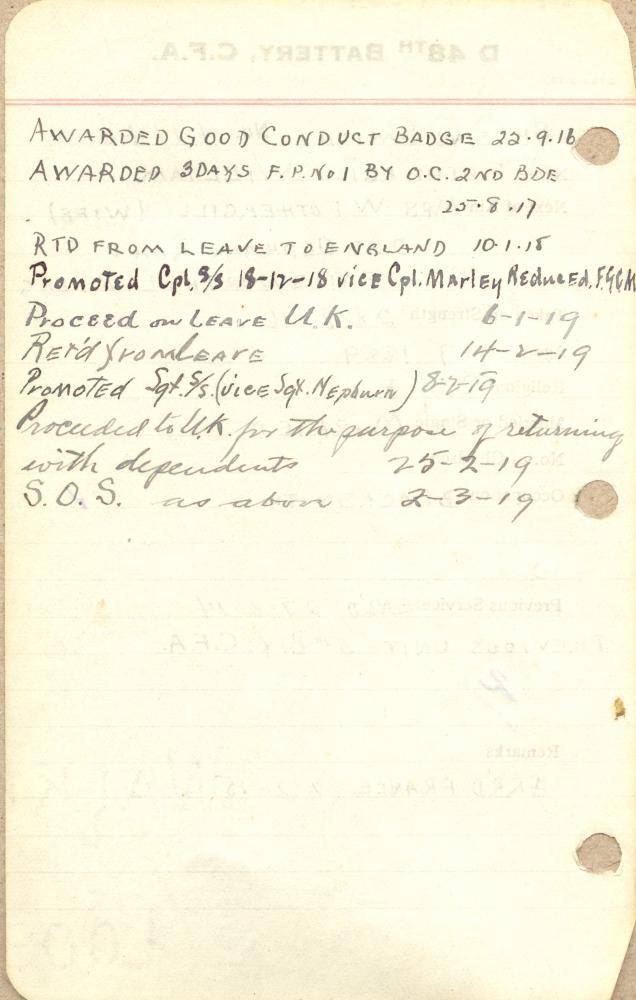 AWARDED GOOD CONDUCT BADGE 22.9.16
AWARDED 3DAYS F.P. No 1 BY O.C. 2ND BDE
25.8.17
RTD FROM LEAVE TO ENGLAND 10.1.18
Promoted Cpl. S/S 18-12-18 vice Cpl. Marley Reduced. F.G.C.M
Proceed on LEAVE U.K. 6-1-19
Ret'd from LEAVE 14-2-19
Promoted Sgt. S/S. (vice Sgt. Hepburn) 8-2-19
Proceeded to U.K. for the purpose of returning
with dependents 25-2-19
S.O.S. as above 2-3-19